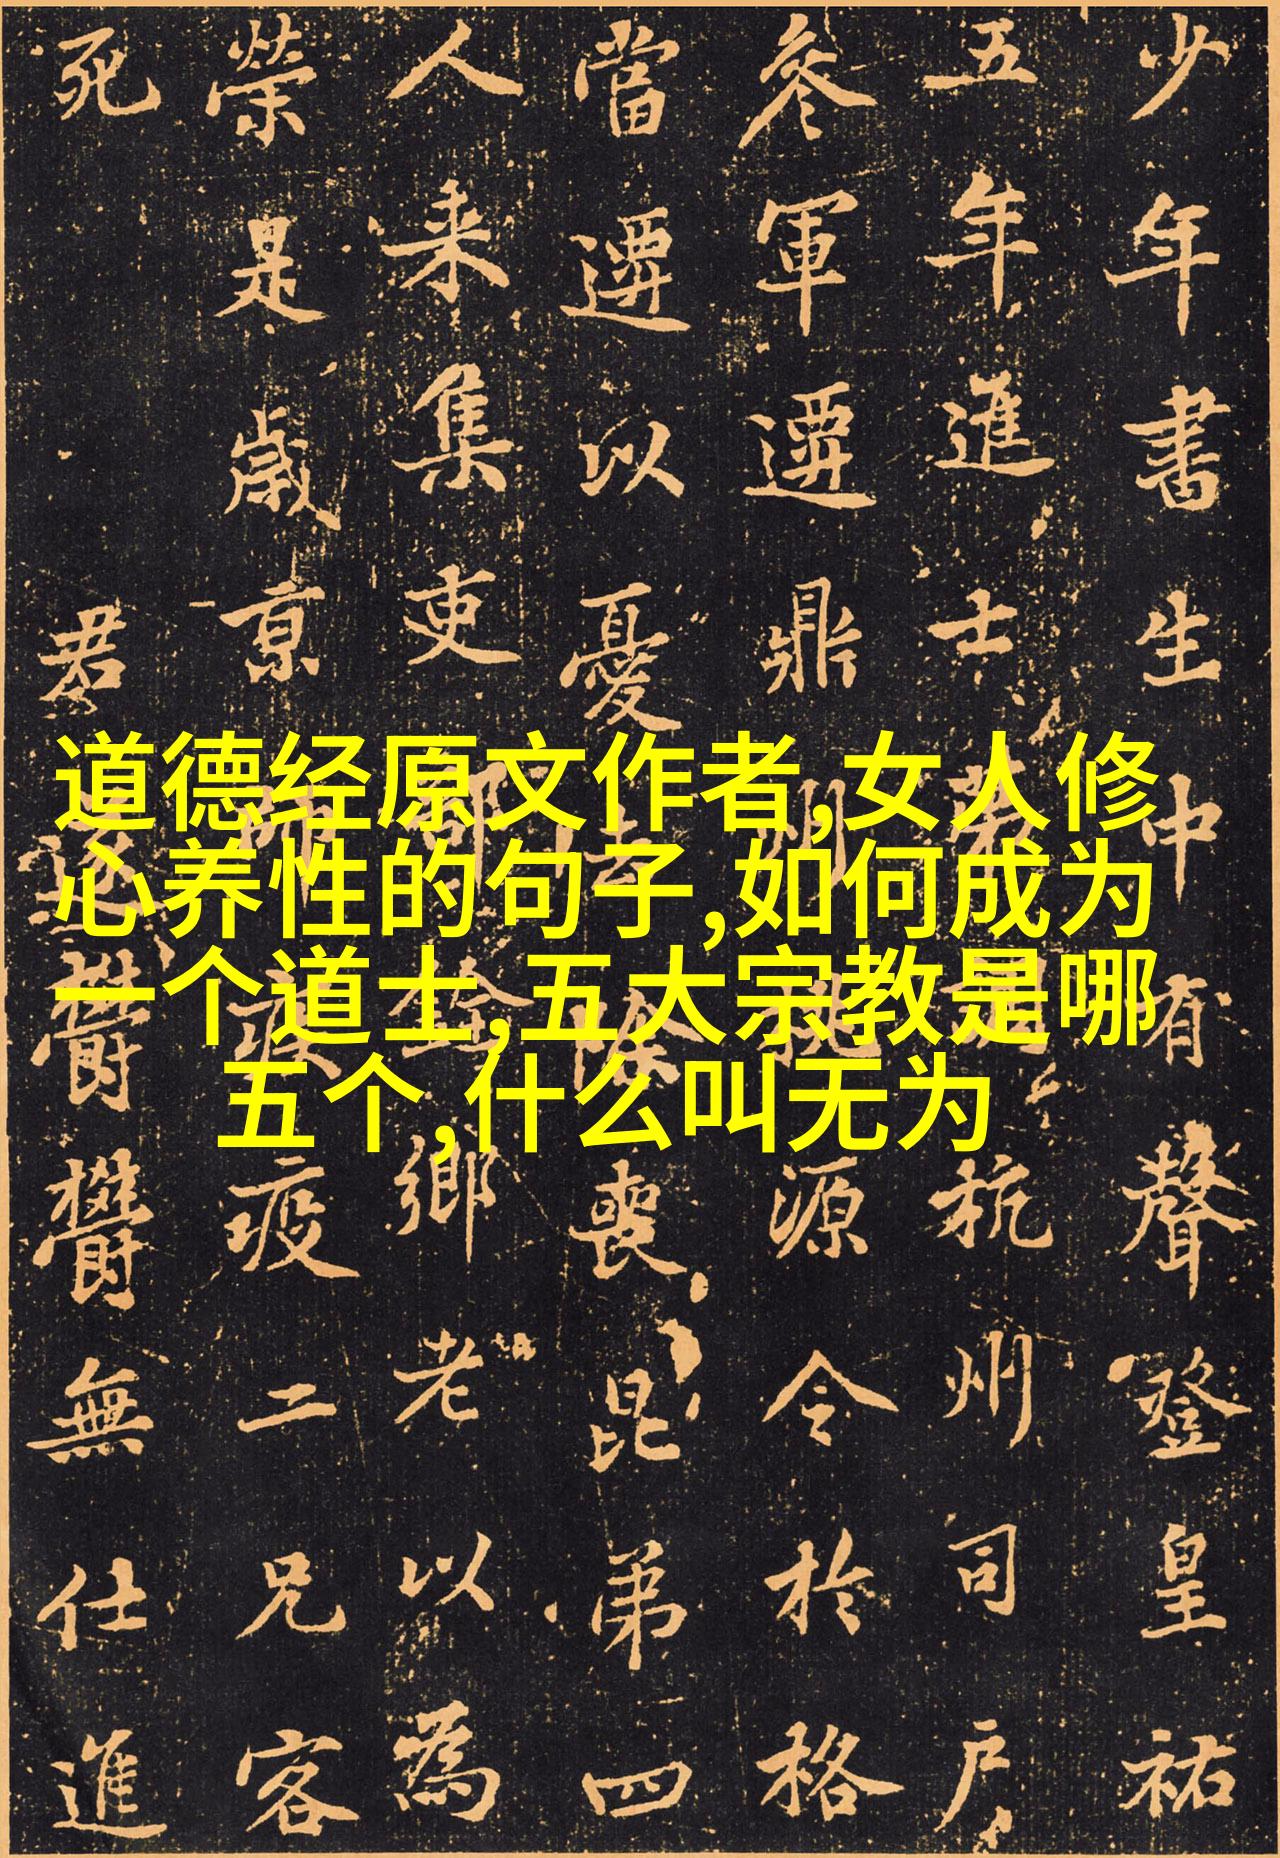 少年書生中有聲登皇祐
五年進士杭州司户
參軍遷鼎州桃源令於格
當遷以憂去除喪昆弟四
人来集吏部鄉老以為
榮是歲京師疫二兄客
死 君鬱鬱無仕進
道德经原文作者,女人修
心养性的句子,如何成为
一个道士,五大宗教是哪
五个,什么叫无为